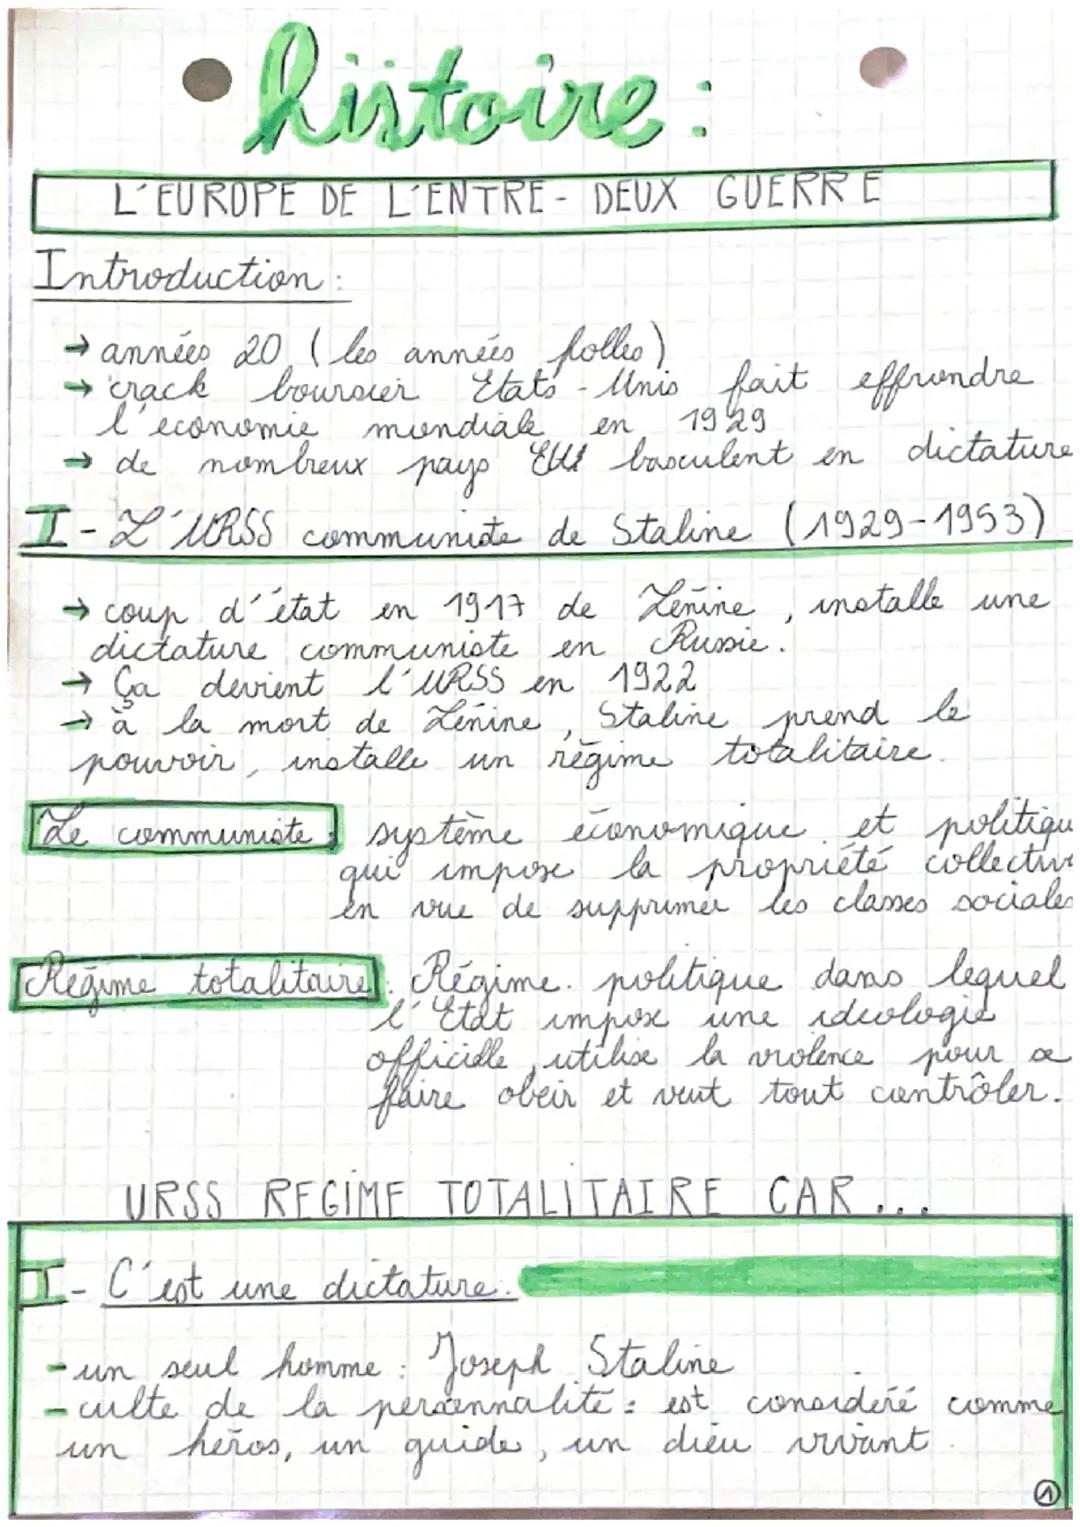 histoire :
L'EUROPE DE L'ENTRE-DEUX GUERRE
Introduction :
→ années 20 (les années folles)
→ crack boursier Etats-Unis fait effrondre
l'économie mondiale en 1929
→ de nombreux pays basculent en dictature
I - L'URSS communiste de Staline (1929-1953)
→ coup d'état en 1917 de Lénine, installe une
dictature communiste en Russie.
→ Ça devient l'URSS en 1922
→ à la mort de Lénine, Staline prend le
pouvoir, installe un régime totalitaire.
Le communiste : système économique et politiqu
qui impose la propriété collectiv
en vue de supprimer les classes sociales
Régime totalitaire : Régime politique dans lequel
l'Etat impose une idéologie
officielle, utilise la violence pour se
faire obéir et veut tout contrôler.
URSS REGIME TOTALITAIRE CAR ...
I - C'est une dictature.
- un seul homme : Joseph Staline
- culte de la personnalité : est considéré comme
un héros, un guide, un dieu vivant.
1